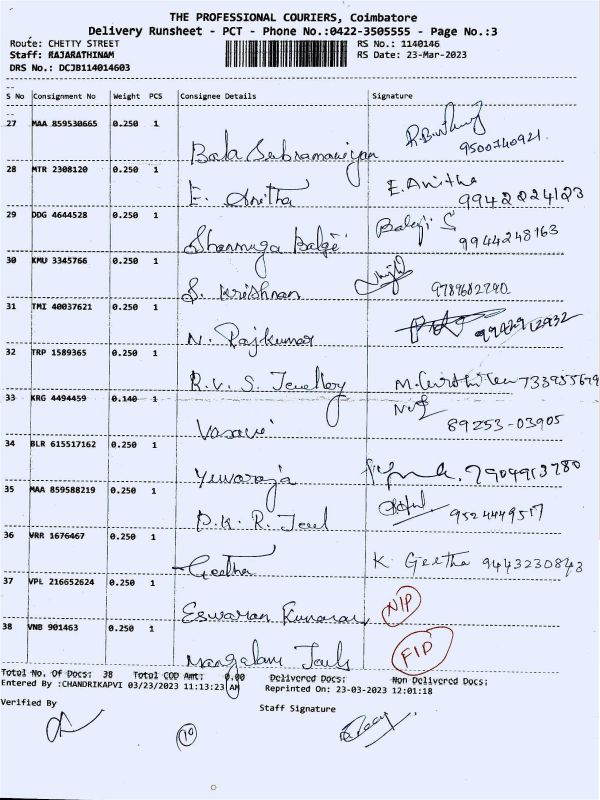 THE PROFESSIONAL COURIERS, Coimbatore
Delivery Runsheet - PCT - Phone No.:0422-3505555 - Page No.:3
Route: CHETTY STREET RS No.: 1140146
Staff: RAJARATHINAM RS Date: 23-Mar-2023
DRS No.: DCJB114014603
S No Consignment No Weight PCS Consignee Details Signature
27 MAA 859530665 0.250 1
Bala Subramaniyan 9500140921
28 MTR 2308120 0.250 1
E. Anitha E. Anitha 9942224123
29 DDG 4644528 0.250 1
Shanmuga Balaji Balaji S 9944248163
30 KMU 3345766 0.250 1
S. Krishnan 9789682290
31 TMI 40037621 0.250 1
N. Rajkumar
32 TRP 1589365 0.250 1
R.V.S. Jewellery
33 KRG 4494459 0.140 1
Vasavi 89253-03905
34 BLR 615517162 0.250 1
Yuvaraja 7904913780
35 MAA 859588219 0.250 1
P.K.R. Jewel 9524449517
36 VRR 1676467 0.250 1
Geetha K. Geetha 9443230843
37 VPL 216652624 0.250 1
Eswaran Kumaran NIP
38 VNB 901463 0.250 1
Mangalam Jewels FIP
Total No. Of Docs: 38 Total COD Amt: 0.00 Delivered Docs: Non Delivered Docs:
Entered By :CHANDRIKAPVI 03/23/2023 11:13:23 AM Reprinted On: 23-03-2023 12:01:18
Verified By Staff Signature
10